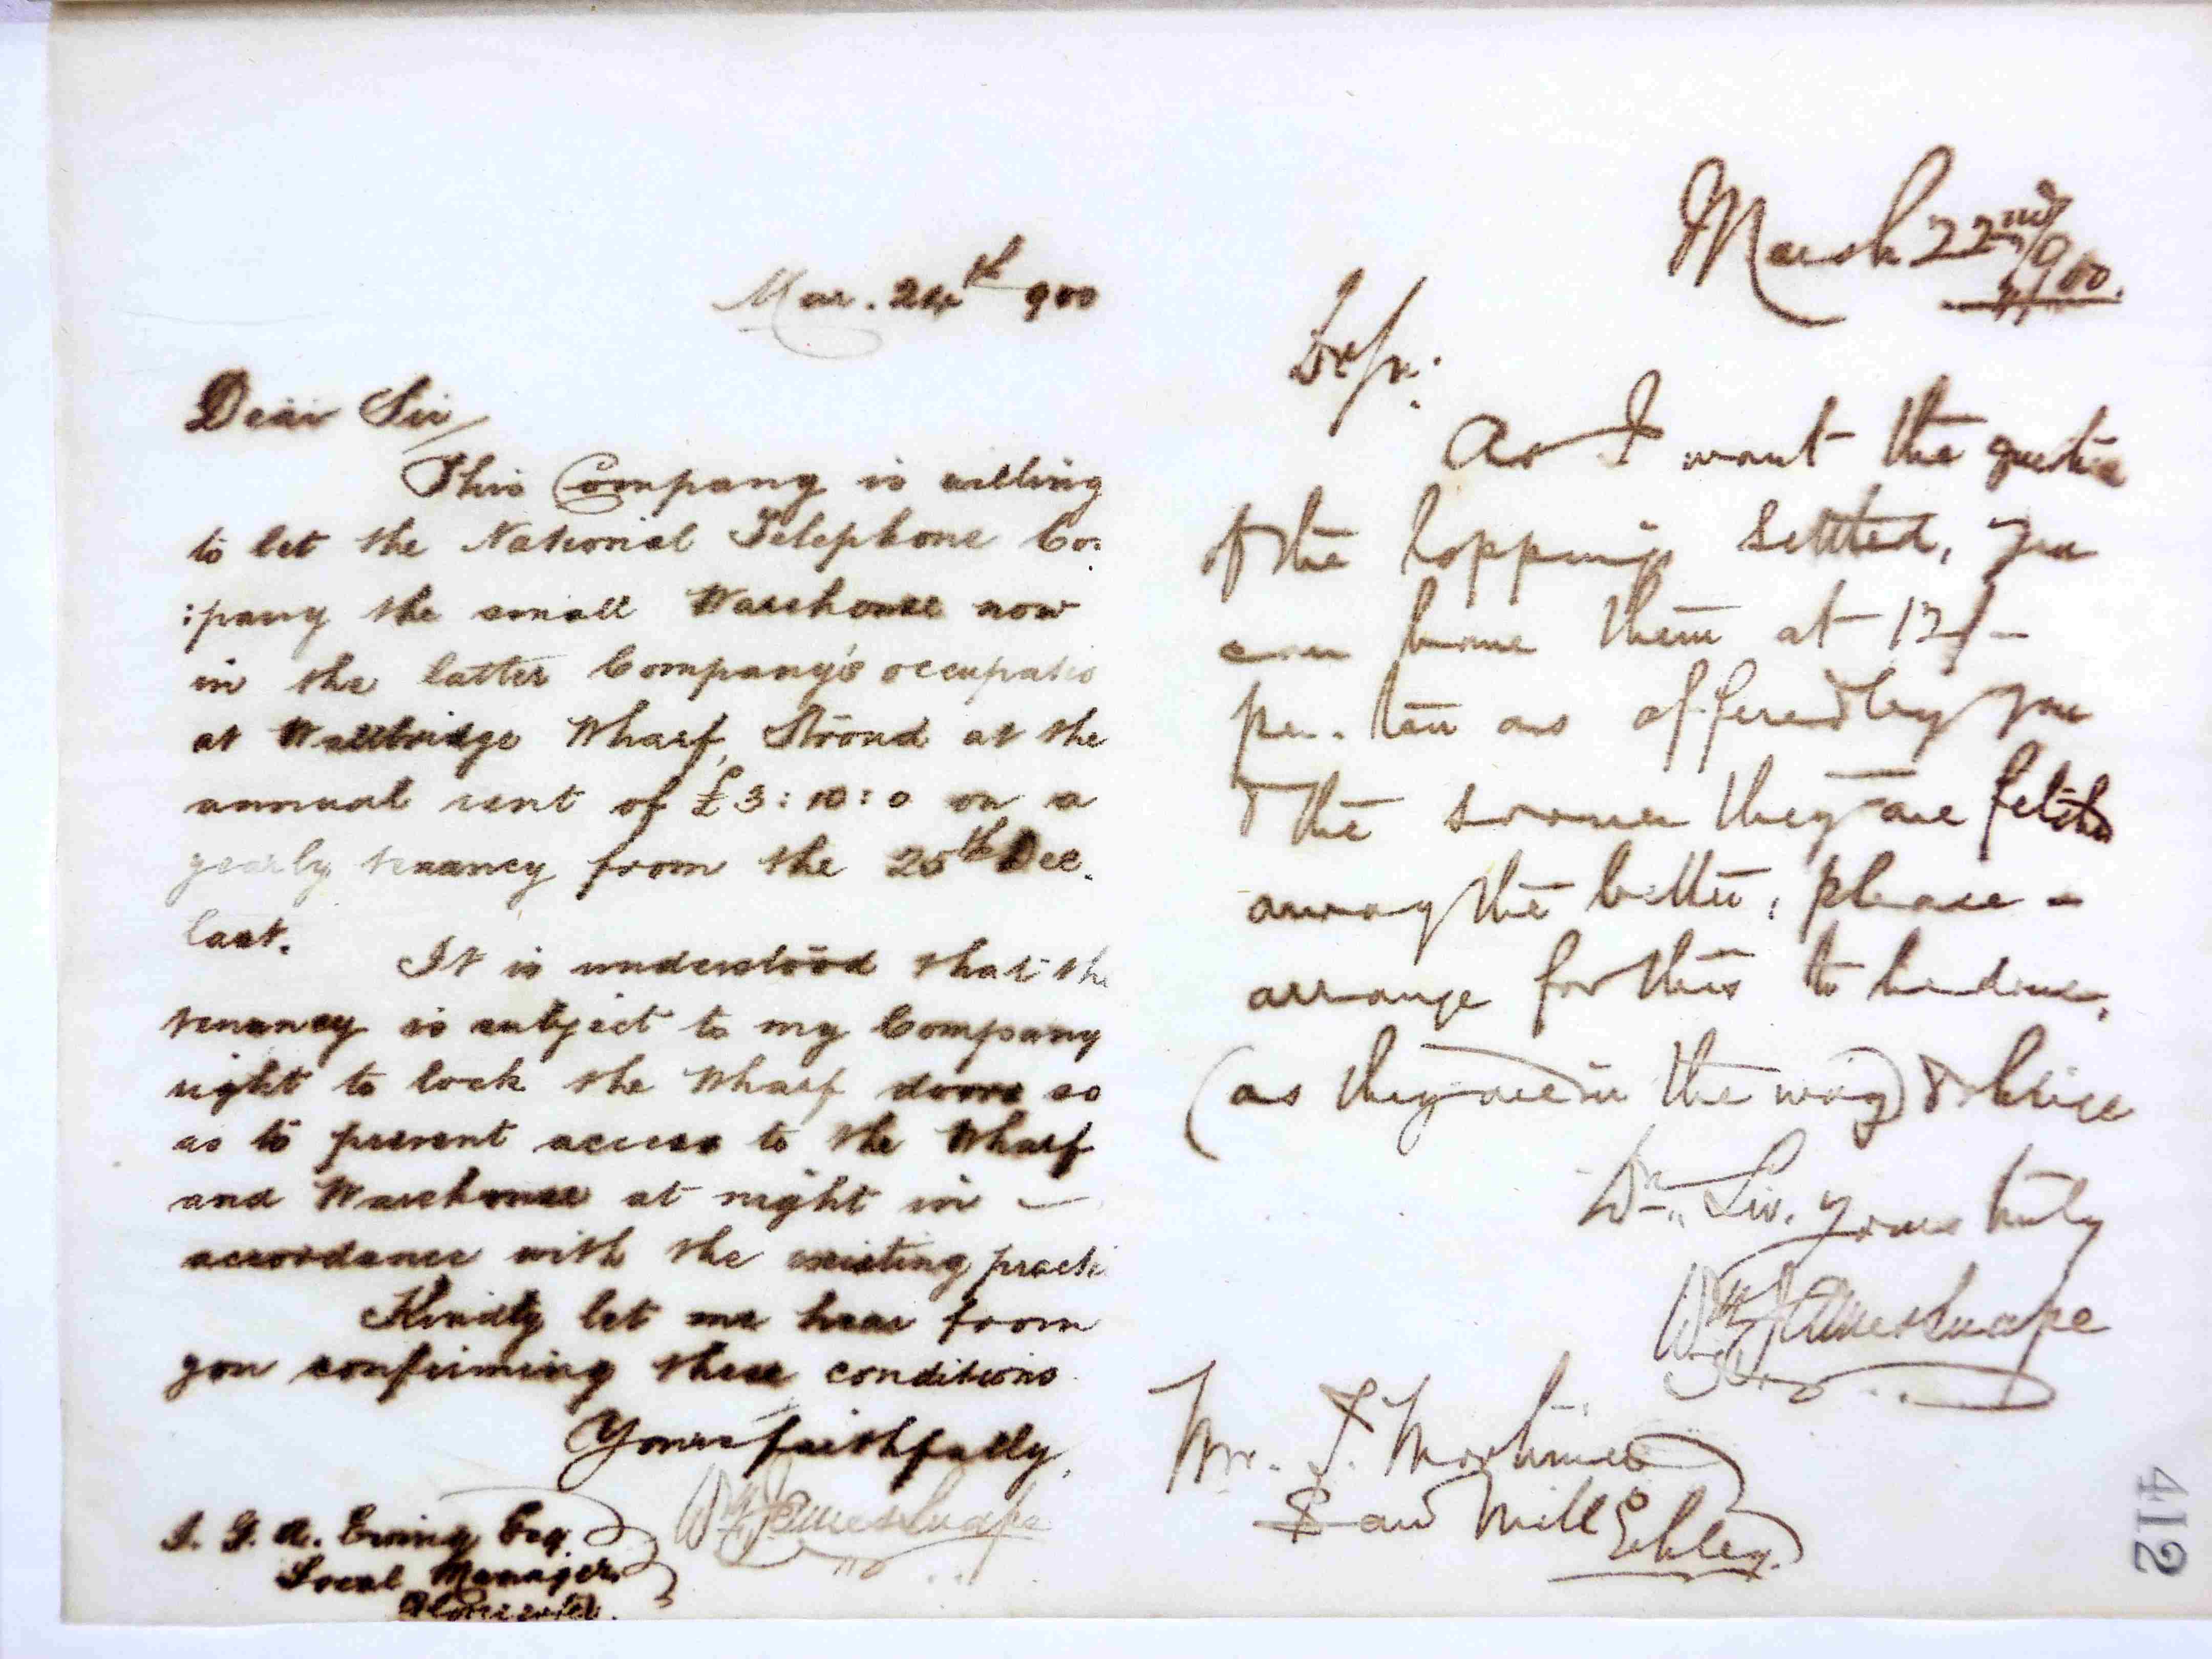 Mar. 24th 900
Dear Sir
This Company is willing
to let the National Telephone Co:
:pany the small Warehouse now
in the latter Company's occupatio
at Wallbridge Wharf, Stroud at the
annual rent of £3:10:0 on a
yearly tenancy from the 25th Dec.
last.
It is understood that the
tenancy is subject to my Company
right to lock the Wharf doors so
as to prevent access to the Wharf
and Warehouse at night in —
accordance with the existing practi
Kindly let me hear from
you confirming these conditions
Yours faithfully,
Wm J. Snape
I. G. A. Ewing Esq.
Local Manager
Gloucester.
March 22nd/900.
D Sir.
As I want the questio
of the loppings settled, you
can have them at 12/-
per. ton as offered by you
& the sooner they are fetched
away the better, please -
arrange for this to be done,
(as they are in the way) & oblige
Dr. Sir, Yours truly
Wm J. Snape
Mr. S. Mortimer
Saw Mills
Ebley.
412